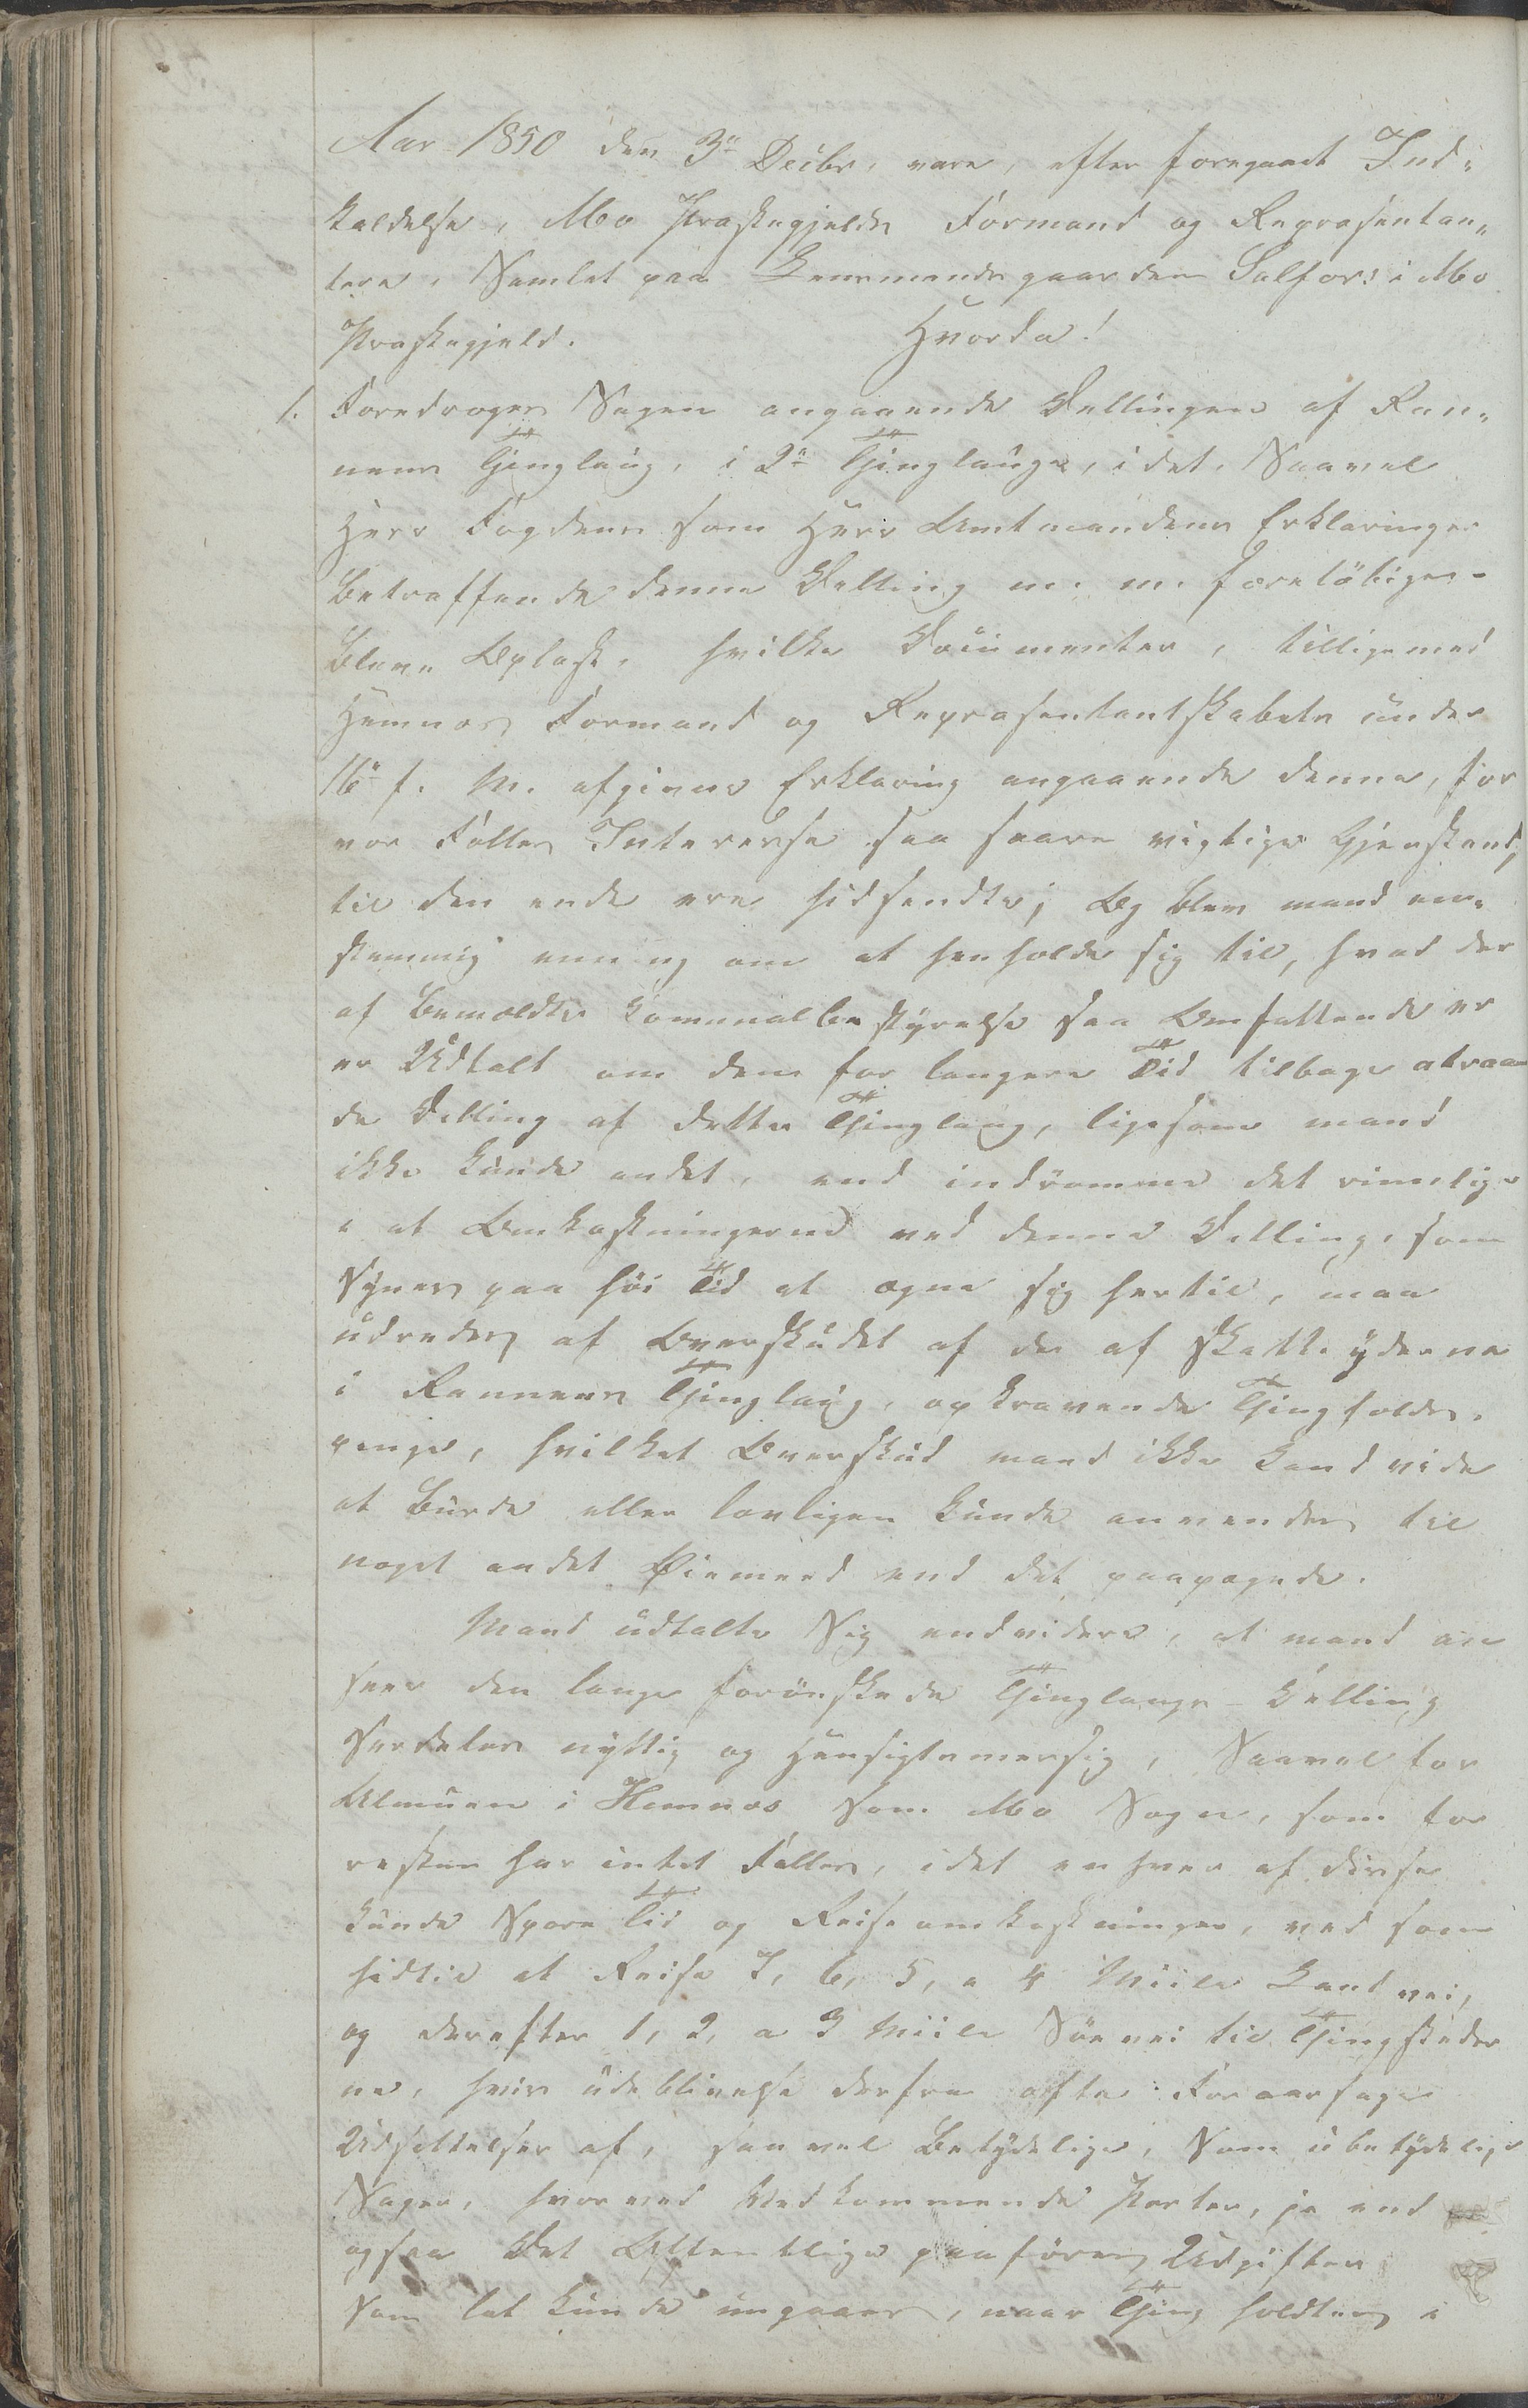 Aar 1850 den 3die Decbr. vare, efter foregaaet Ind-
kaldelse, Moe Præstegjelds Formænd og Repræsentan„
tere, Samlet paa Lensmandsgaarden Salfors i Mo
Præstegjeld. Hvorda!
1. Foredroges Sagen angaaende Dellingen af Ran„
nens Thinglaug, i 2de Thinglauge, idet, Saavel
Herr Fogdens som Herr Amtmandens Erklæringer
betræffende denne Delling m. m. foreløbigen
bleve Oplæst, hvilke Documenter, tilligemed
Hemnæs Formænd og Repræsentantskabets under
16de f. M. afgivne Erklæring angaaende denne, for
vor Fælles Interesse saa saare vigtige Gjenstand,
til den ende ere hidsendte; Og blev mand een-
stemmig eening om at henholde sig til, hvad der
af bemældte Communalbestyrelse saa Omfattende er
er Udtalt om den for længere Tid tilbage atraa
de Delling af dette Thinglaug, ligesom mand
ikke kunde andet, end indrømme det rimelige
i at Omkostningerne ved denne Delling, som
synes paa høi Tid at egne sig hertil, maa
udredes af Overskudet af de af Skatteyderne
i Rannens Thinglaug, opkrævende Thingholds„
penge, hvilket Overskud mand ikke kand vide
at burde eller lovligen kunde anvendes til
noget andet Øiemeed end det paapegede.
Mand udtalte Sig endvidere, at mand an
seer den længe forønskede Thinglaugs-Delling
Særdeles nyttig og Hensigtsmessig, Saavel for
Almuen i Hemnæs som Mo Sogn, som for
resten har intet Fælles, idet enhver af disse
kunde Spare Tid og Reiseomkostninger, ved som
hidtil at Reise 7, 6, 5, a 4 Miile Landvei,
og derefter 1, 2, a 3 Miile Søevei til Thingstæder
ne, hvis udeblivelse derfra ofte Foraarsager
Udsættelser af, saavel Betydelige, Som ubetydelige
Sager, hvorved Vedkommende Parter, ja end
ogsaa Det Offentlige paaføres Udgifter
som let kunde ungaaes, naar Thing holdtes i